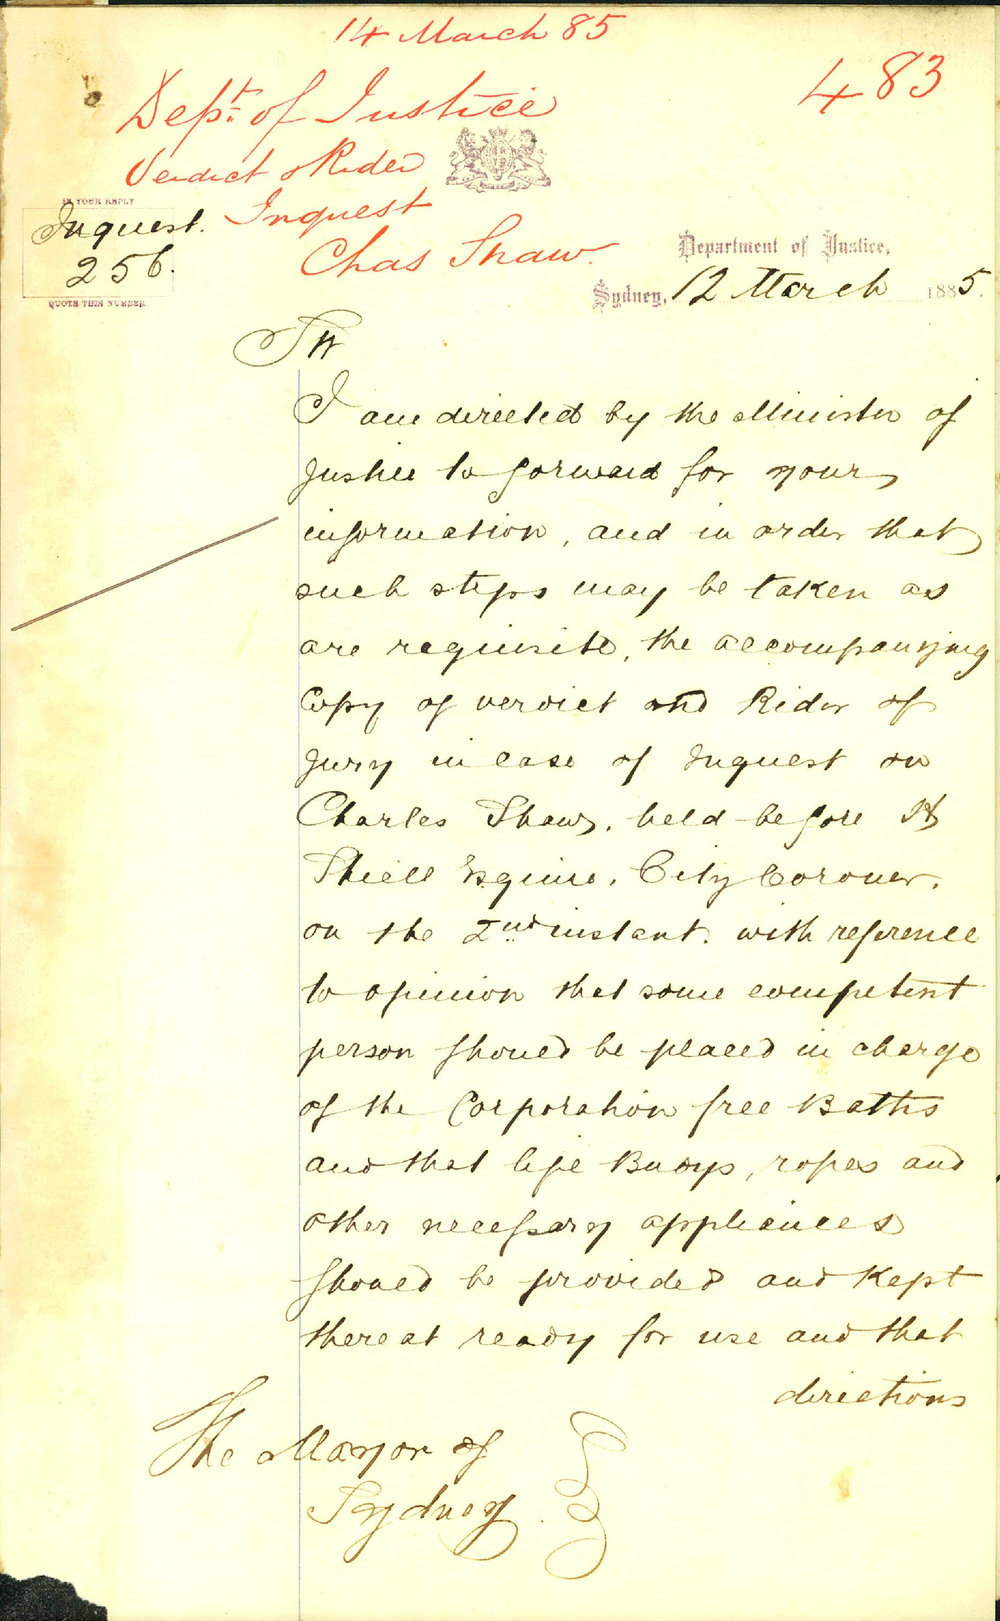 14 March 85
483
Dept. of Justice
Verdict & Rider
Inquest
Chas Shaw.
IN YOUR REPLY
Inquest.
256.
QUOTE THIS NUMBER
Department of Justice,
Sydney, 12 March 1885.
Sir
I am directed by the Minister of
Justice to forward for your
information, and in order that
such steps may be taken as
are requisite, the accompanying
Copy of verdict and Rider of
Jury in case of Inquest on
Charles Shaw, held before H
Shiell Esquire, City Coroner,
on the 2nd instant. with reference
to opinion that some competent
person should be placed in charge
of the Corporation free Baths
and that life Buoys, ropes and
other necessary appliances
should be provided and kept
thereat ready for use and that
directions
The Mayor of
Sydney